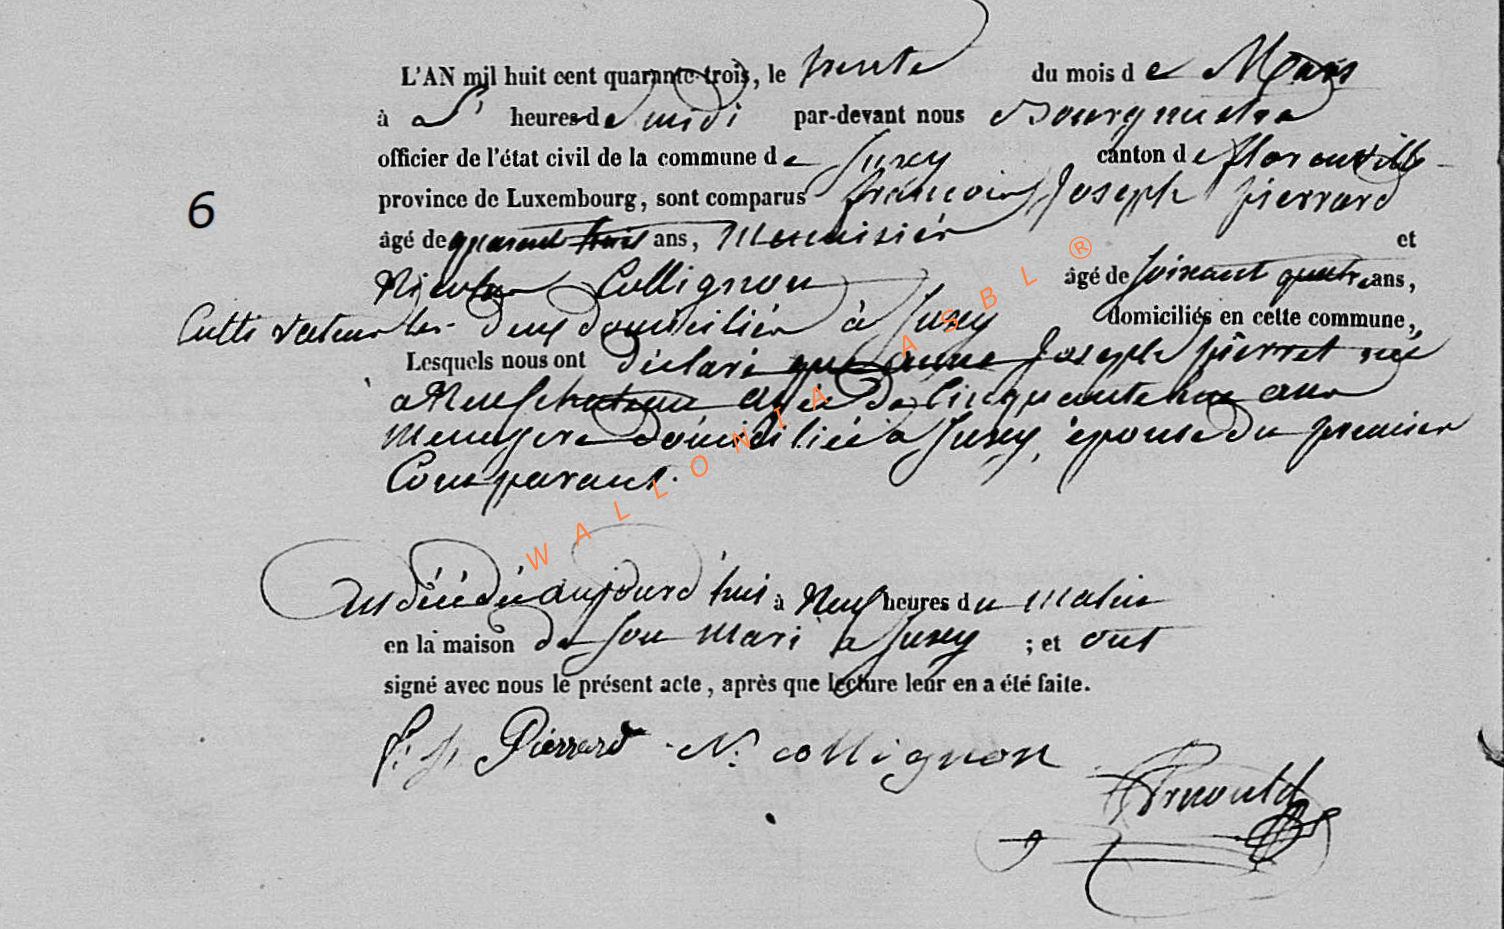 L'AN mil huit cent quarante-trois, le trente du mois de Mars
à heures de midi par-devant nous Bourgmestre
officier de l'état civil de la commune de Suxy canton de florenville
province de Luxembourg, sont comparus francois Joseph pierrard
6
âgé de quarant trois ans, Menuisier et
Nicolas Collignon âgé de soixant quatre ans,
Culti vateur les deux domiciliés à Suxy domiciliés en cette commune,
Lesquels nous ont déclaré que anne Joseph pierret née
a Neufchateau agée de Cinquante ans
Menagere domiciliée a Suxy, épouse du premier
Comparant.
Est décédée aujourd huis à Neuf heures du matin
en la maison de son mari a Suxy ; et ont
signé avec nous le présent acte, après que lecture leur en a été faite.
f. J. Pierrard N: collignon
Arnould
WALLONIA ASBL ®